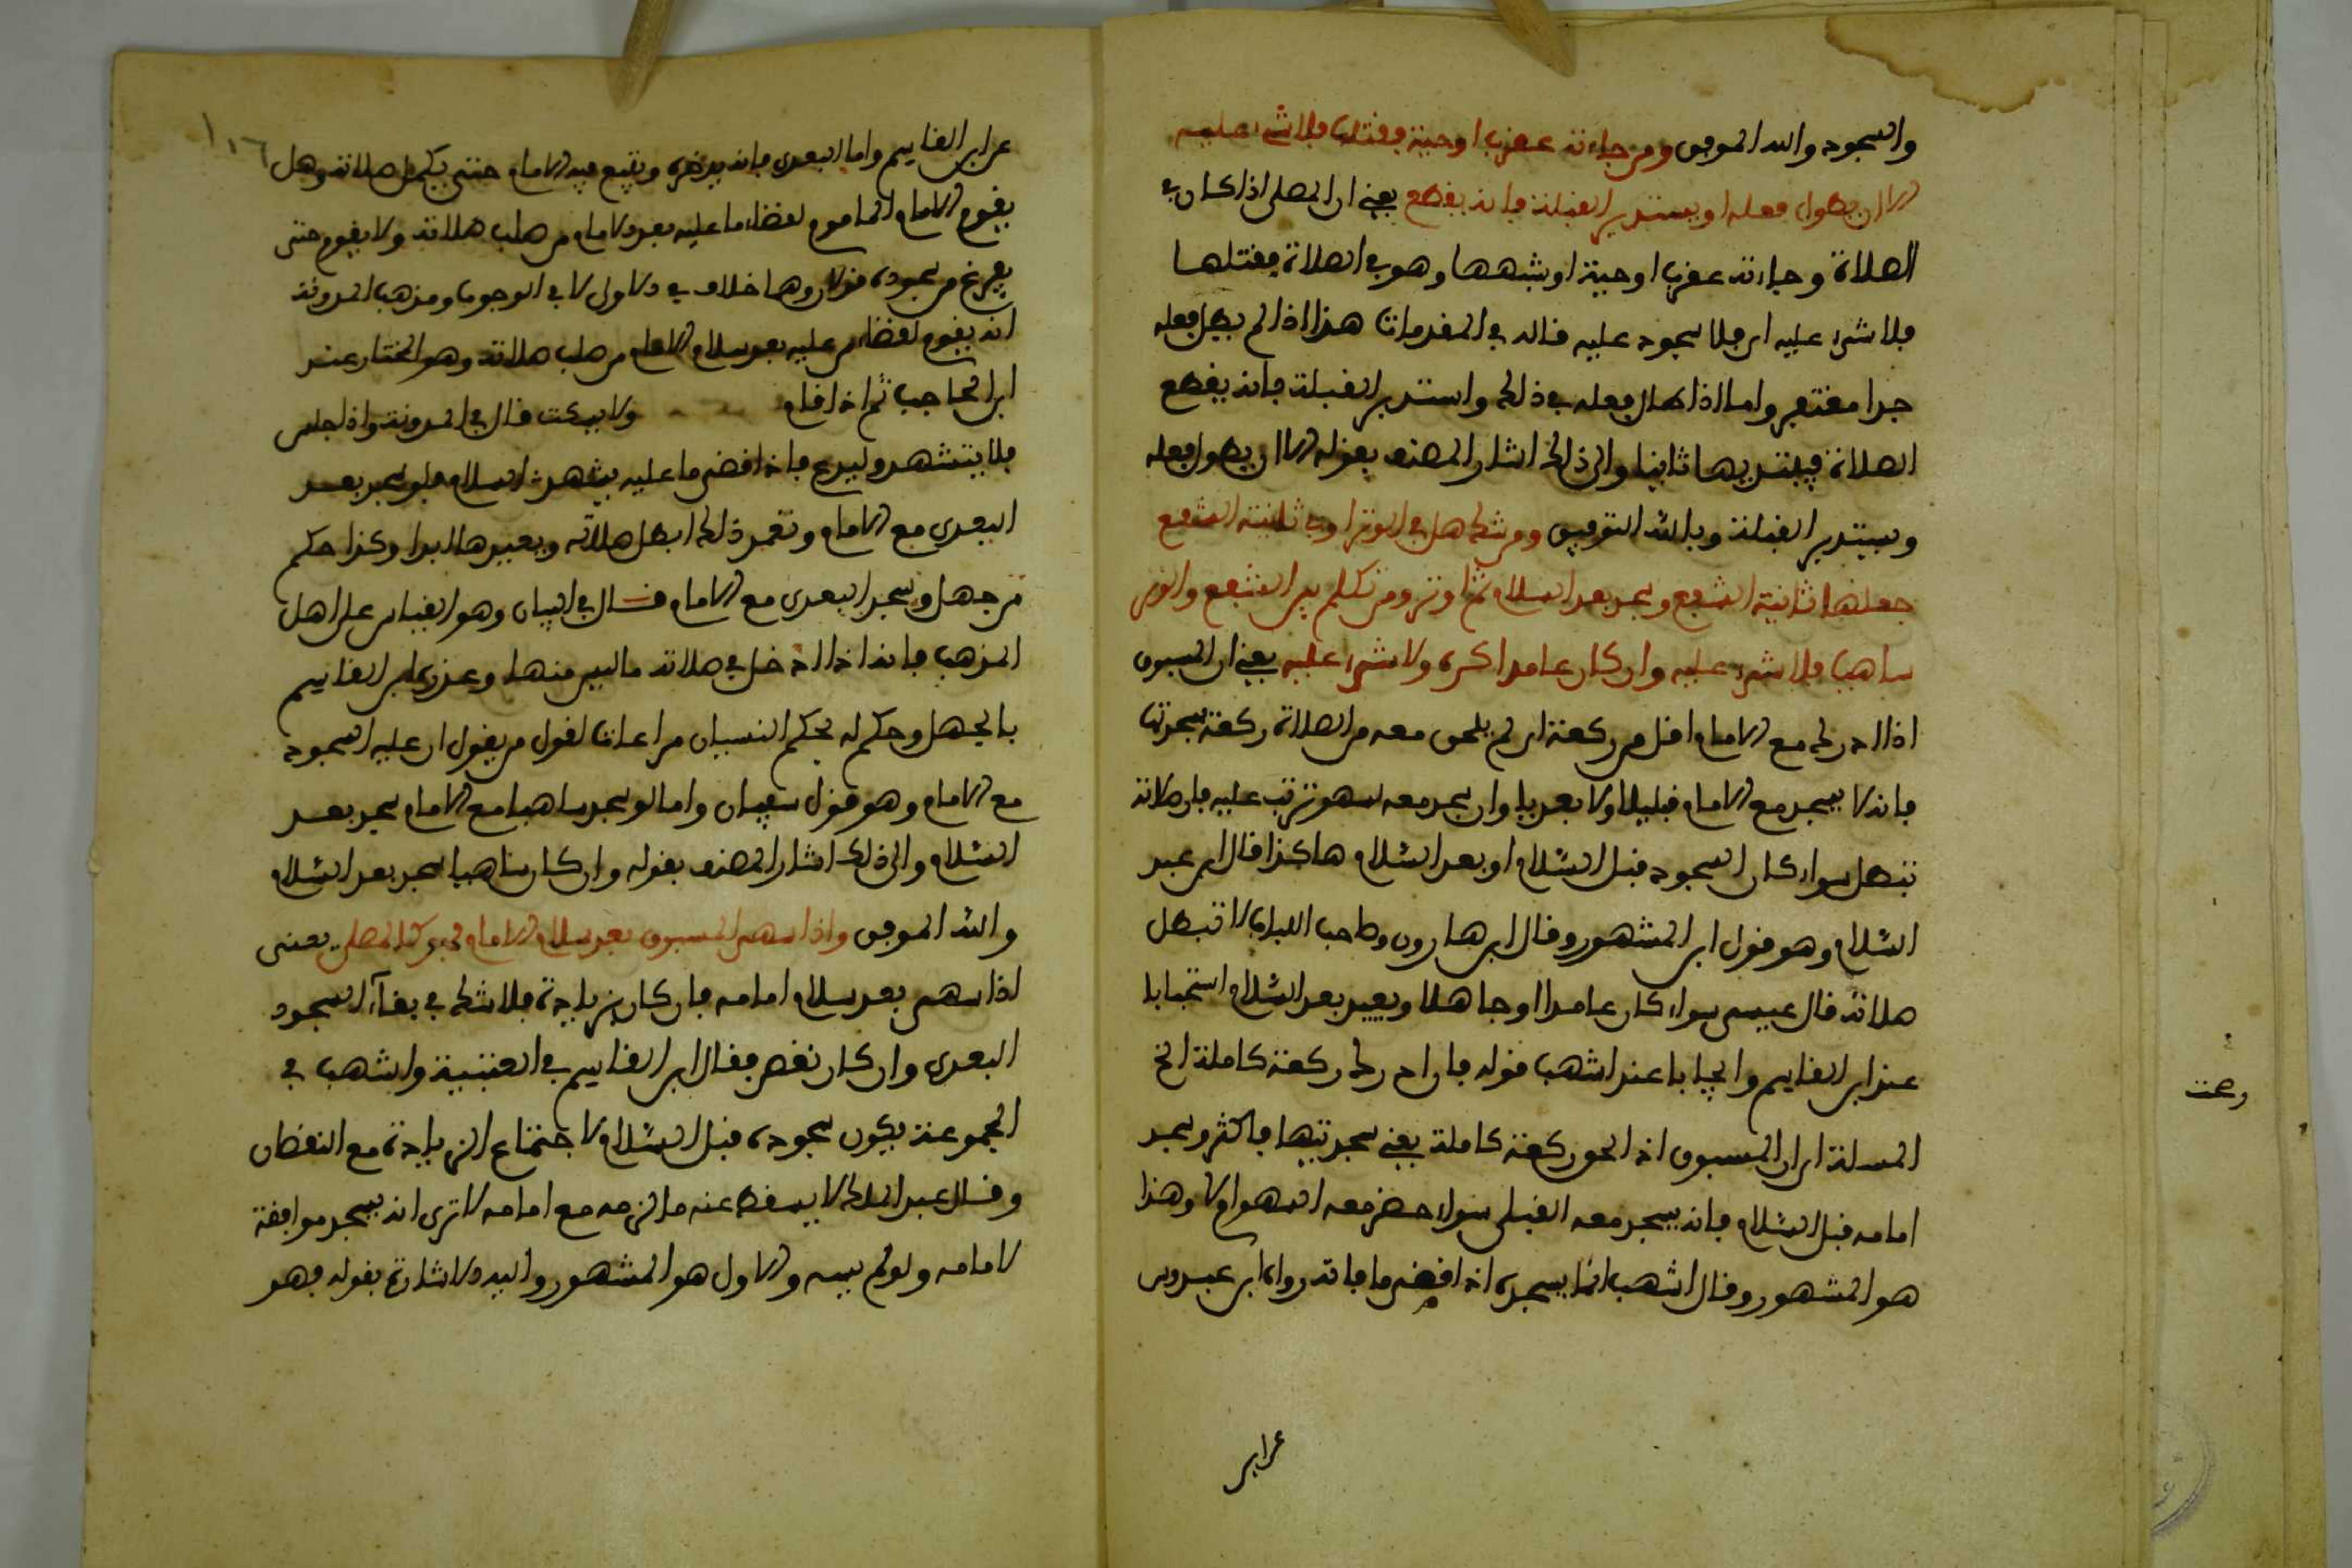 والسجود والله الموفق ومن جاءته عقرب او حية فقتلها فلا شيء عليه
الا ان يطول فعله او يستدبر القبلة فانه يقطع يعني ان المصلي اذا كان في
الصلاة وجاءته عقرب او حية او شبهها وهو في الصلاة فقتلها
فلا شيء عليه اي فلا سجود عليه قاله في المقدمات هذا اذا لم يطل فعله
جدا مغتفر واما اذا طال فعله في ذلك واستدبر القبلة فانه يقطع
الصلاة فيبتديها ثانيا والى ذلك اشار المصنف بقوله الا ان يطول فعله
ويستدبر القبلة وبالله التوفيق ومن شك هل في الوتر او في ثانية الشفع
جعلها ثانية الشفع وسجد بعد السلام ثم اوتر ومن تكلم بين الشفع والوتر
ساهيا فلا شيء عليه وان كان عامدا كره ولا شيء عليه يعني ان المسبوق
اذا ادرك مع الامام اقل من ركعة اي لم يلحق معه من الصلاة ركعة بسجدتيها
فانه لا يسجد مع الامام قبليا ولا بعديا وان سجد معه لسهو ترتب عليه فان صلاته
تبطل سواء كان السجود قبل السلام او بعد السلام هاكذا قال ابن عبد
السلام وهو قول ابن المشهور وقال ابن هارون وصاحب اللباب لا تبطل
صلاته قال عيسى سواء كان عامدا او جاهلا ويعيد بعد السلام استحبابا
عند ابن القاسم وايجابا عند اشهب قوله فان ادرك ركعة كاملة الخ
المسلة اي ان المسبوق اذا لحق ركعة كاملة يعني بسجدتيها فاكثر وسجد
امامه قبل السلام فانه يسجد معه القبلي سواء حضر معه السهو ام لا وهذا
هو المشهور وقال اشهب انما يسجده اذا قضى ما فاته رواه ابن عبدوس
عن ابن
عن ابن القاسم واما البعدي فانه يؤخره ويتبع فيه الامام حتى يكمل صلاته وهل
يقوم الامام الماموم لقضاء ما عليه بعد الامام من صلب صلاته ولا يقوم حتى
يفرغ من سجوده قولان وهما خلاف في الاولى لا في الوجوب ومذهب المدونة
انه يقوم لقضاء من عليه بعد سلام الامام من صلب صلاته وهو المختار عند
ابن الحاجب ثم اذا قام ولا يسكت قال في المدونة واذا جلس
فلا يتشهد وليدع فاذا قضى ما عليه يتشهد ثم السلام فلو سجد بعد
البعدي مع الامام وتعمد ذلك ابطل صلاته ويعيدها ابدا وكذا حكم
من جهل وسجد البعدي مع الامام قال في البيان وهو القياس على اهل
المذهب فانه اذا ادخل في صلاته ما ليس منها وعذره ابن القاسم
بالجهل وحكم له بحكم النسيان مراعاة لقول من يقول ان عليه السجود
مع الامام وهو قول سفيان واما لو سجد ساهيا مع الامام سجد بعد
السلام والى ذلك اشار المصنف بقوله وان كان ساهيا سجد بعد السلام
والله الموفق واذا سهى المسبوق بعد سلام الامام فهو كالمصلي يعنى
اذا سهى بعد سلام امامه فان كان بزيادة فلا شك في بقاء السجود
البعدي وان كان نقص فقال ابن القاسم في العتبية واشهب في
المجموعة يكون سجوده قبل السلام لاجتماع الزيادة مع النقصان
وقال عبد الملك لا يسقط عنه ما لزمه مع امامه لا ترى انه يسجد موافقة
لامامه ولو لم يسه والاول هو المشهور واليه الاشارة بقوله فهو